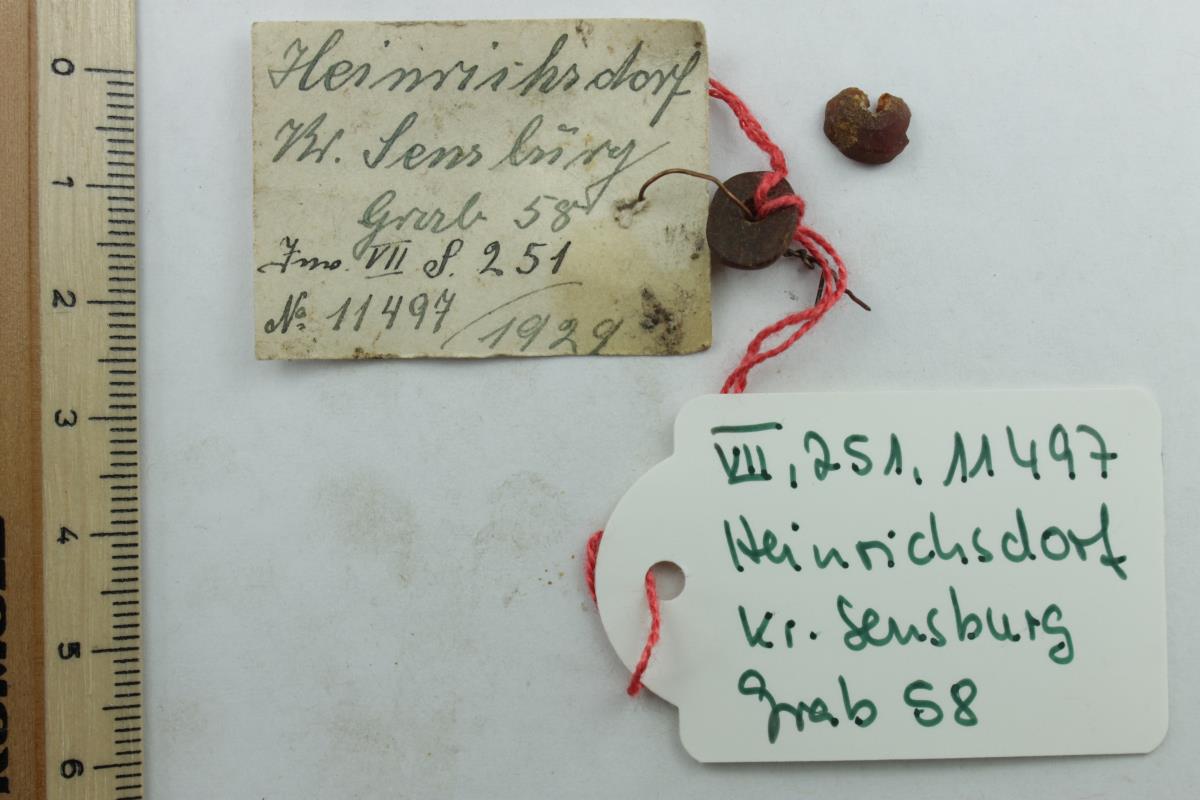 Heinrichsdorf
Kr. Sensbŭrg
Grab 58
Inv. VII S. 251
No. 11497 / 1929
VII, 251, 11497
Heinrichsdorf
Kr. Sensburg
Grab 58
0
1
2
3
4
5
6